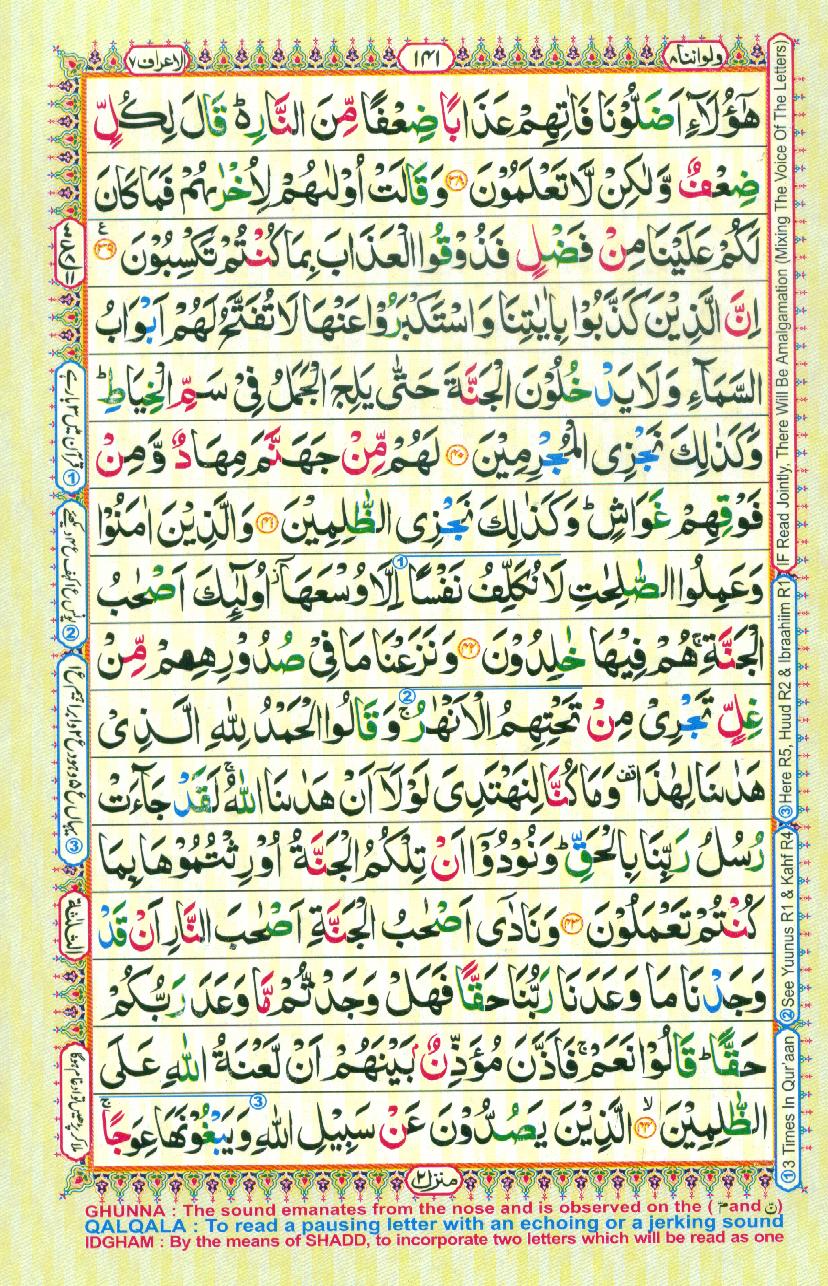 الاعراف ٧
١٤١
ولواننا ٨
هٰٓؤُلَآءِ اَضَلُّوْنَا فَاٰتِهِمْ عَذَابًا ضِعْفًا مِّنَ النَّارِ ؕ قَالَ لِكُلٍّ
ضِعْفٌ وَّلٰكِنْ لَّا تَعْلَمُوْنَ ﴿۳۸﴾ وَقَالَتْ اُوْلٰىهُمْ لِاُخْرٰىهُمْ فَمَا كَانَ
لَكُمْ عَلَيْنَا مِنْ فَضْلٍ فَذُوْقُوا الْعَذَابَ بِمَا كُنْتُمْ تَكْسِبُوْنَ ﴿۳۹﴾
اِنَّ الَّذِيْنَ كَذَّبُوْا بِاٰيٰتِنَا وَاسْتَكْبَرُوْا عَنْهَا لَا تُفَتَّحُ لَهُمْ اَبْوَابُ
السَّمَآءِ وَلَا يَدْخُلُوْنَ الْجَنَّةَ حَتّٰى يَلِجَ الْجَمَلُ فِيْ سَمِّ الْخِيَاطِ ؕ
وَكَذٰلِكَ نَجْزِى الْمُجْرِمِيْنَ ﴿۴۰﴾ لَهُمْ مِّنْ جَهَنَّمَ مِهَادٌ وَّمِنْ
فَوْقِهِمْ غَوَاشٍ ؕ وَكَذٰلِكَ نَجْزِى الظّٰلِمِيْنَ ﴿۴۱﴾ وَالَّذِيْنَ اٰمَنُوْا
وَعَمِلُوا الصّٰلِحٰتِ لَا نُكَلِّفُ نَفْسًا اِلَّا وُسْعَهَآ ؗ اُولٰٓئِكَ اَصْحٰبُ
الْجَنَّةِ ۚ هُمْ فِيْهَا خٰلِدُوْنَ ﴿۴۲﴾ وَنَزَعْنَا مَا فِيْ صُدُوْرِهِمْ مِّنْ
غِلٍّ تَجْرِيْ مِنْ تَحْتِهِمُ الْاَنْهٰرُ ۚ وَقَالُوا الْحَمْدُ لِلّٰهِ الَّذِيْ
هَدٰىنَا لِهٰذَا ۫ وَمَا كُنَّا لِنَهْتَدِيَ لَوْلَآ اَنْ هَدٰىنَا اللّٰهُ ۚ لَقَدْ جَآءَتْ
رُسُلُ رَبِّنَا بِالْحَقِّ ؕ وَنُوْدُوْٓا اَنْ تِلْكُمُ الْجَنَّةُ اُوْرِثْتُمُوْهَا بِمَا
كُنْتُمْ تَعْمَلُوْنَ ﴿۴۳﴾ وَنَادٰٓى اَصْحٰبُ الْجَنَّةِ اَصْحٰبَ النَّارِ اَنْ قَدْ
وَجَدْنَا مَا وَعَدَنَا رَبُّنَا حَقًّا فَهَلْ وَجَدْتُّمْ مَّا وَعَدَ رَبُّكُمْ
حَقًّا ؕ قَالُوْا نَعَمْ ۚ فَاَذَّنَ مُؤَذِّنٌۢ بَيْنَهُمْ اَنْ لَّعْنَةُ اللّٰهِ عَلَى
الظّٰلِمِيْنَ ﴿۴۴﴾ الَّذِيْنَ يَصُدُّوْنَ عَنْ سَبِيْلِ اللّٰهِ وَيَبْغُوْنَهَا عِوَجًا ۚ
منزل ٢
IF Read Jointly, There Will Be Amalgamation (Mixing The Voice Of The Letters)
① 3 Times In Qur'aan ② See Yuunus R1 & Kahf R4 ③ Here R5, Huud R2 & Ibraahiim R1
GHUNNA : The sound emanates from the nose and is observed on the ( مّ and نّ )
QALQALA : To read a pausing letter with an echoing or a jerking sound
IDGHAM : By the means of SHADD, to incorporate two letters which will be read as one